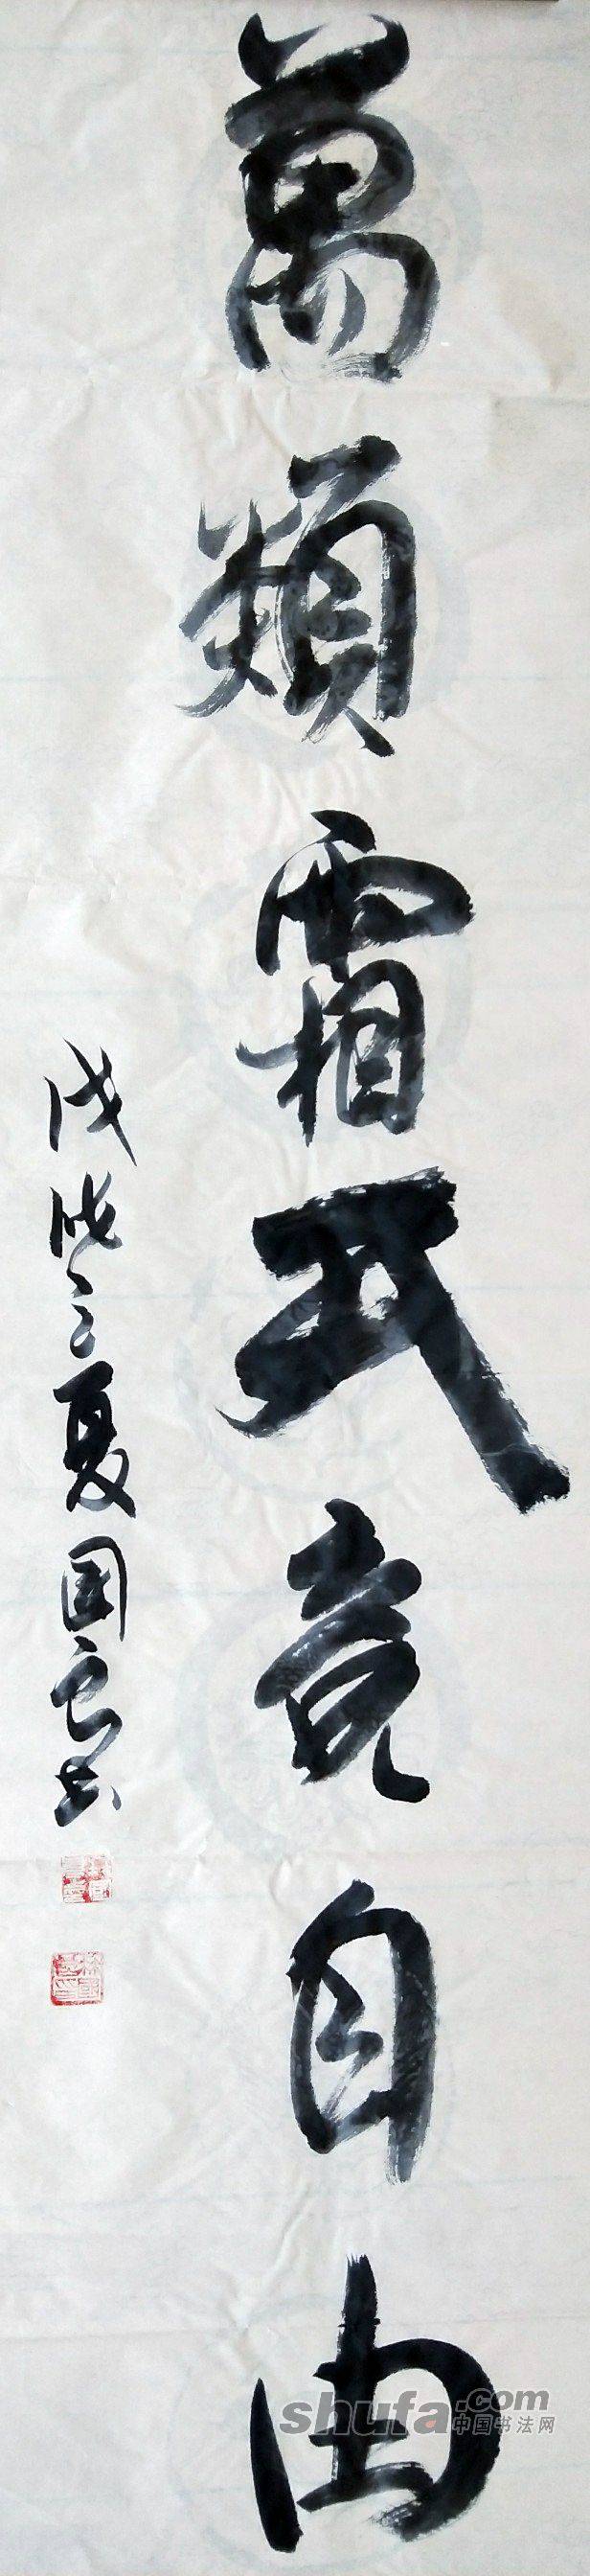 萬類霜天竞自由
戊戌之夏国良书
shufa.com
中国书法网